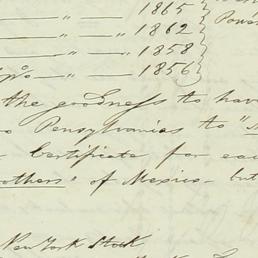 " — " — 1865
— " — 1862
— " — 1858
— " — 1856
the goodness to have
Pensylvanias to "
Certificate for eac
rothers" of Mexico - but
New York Stock